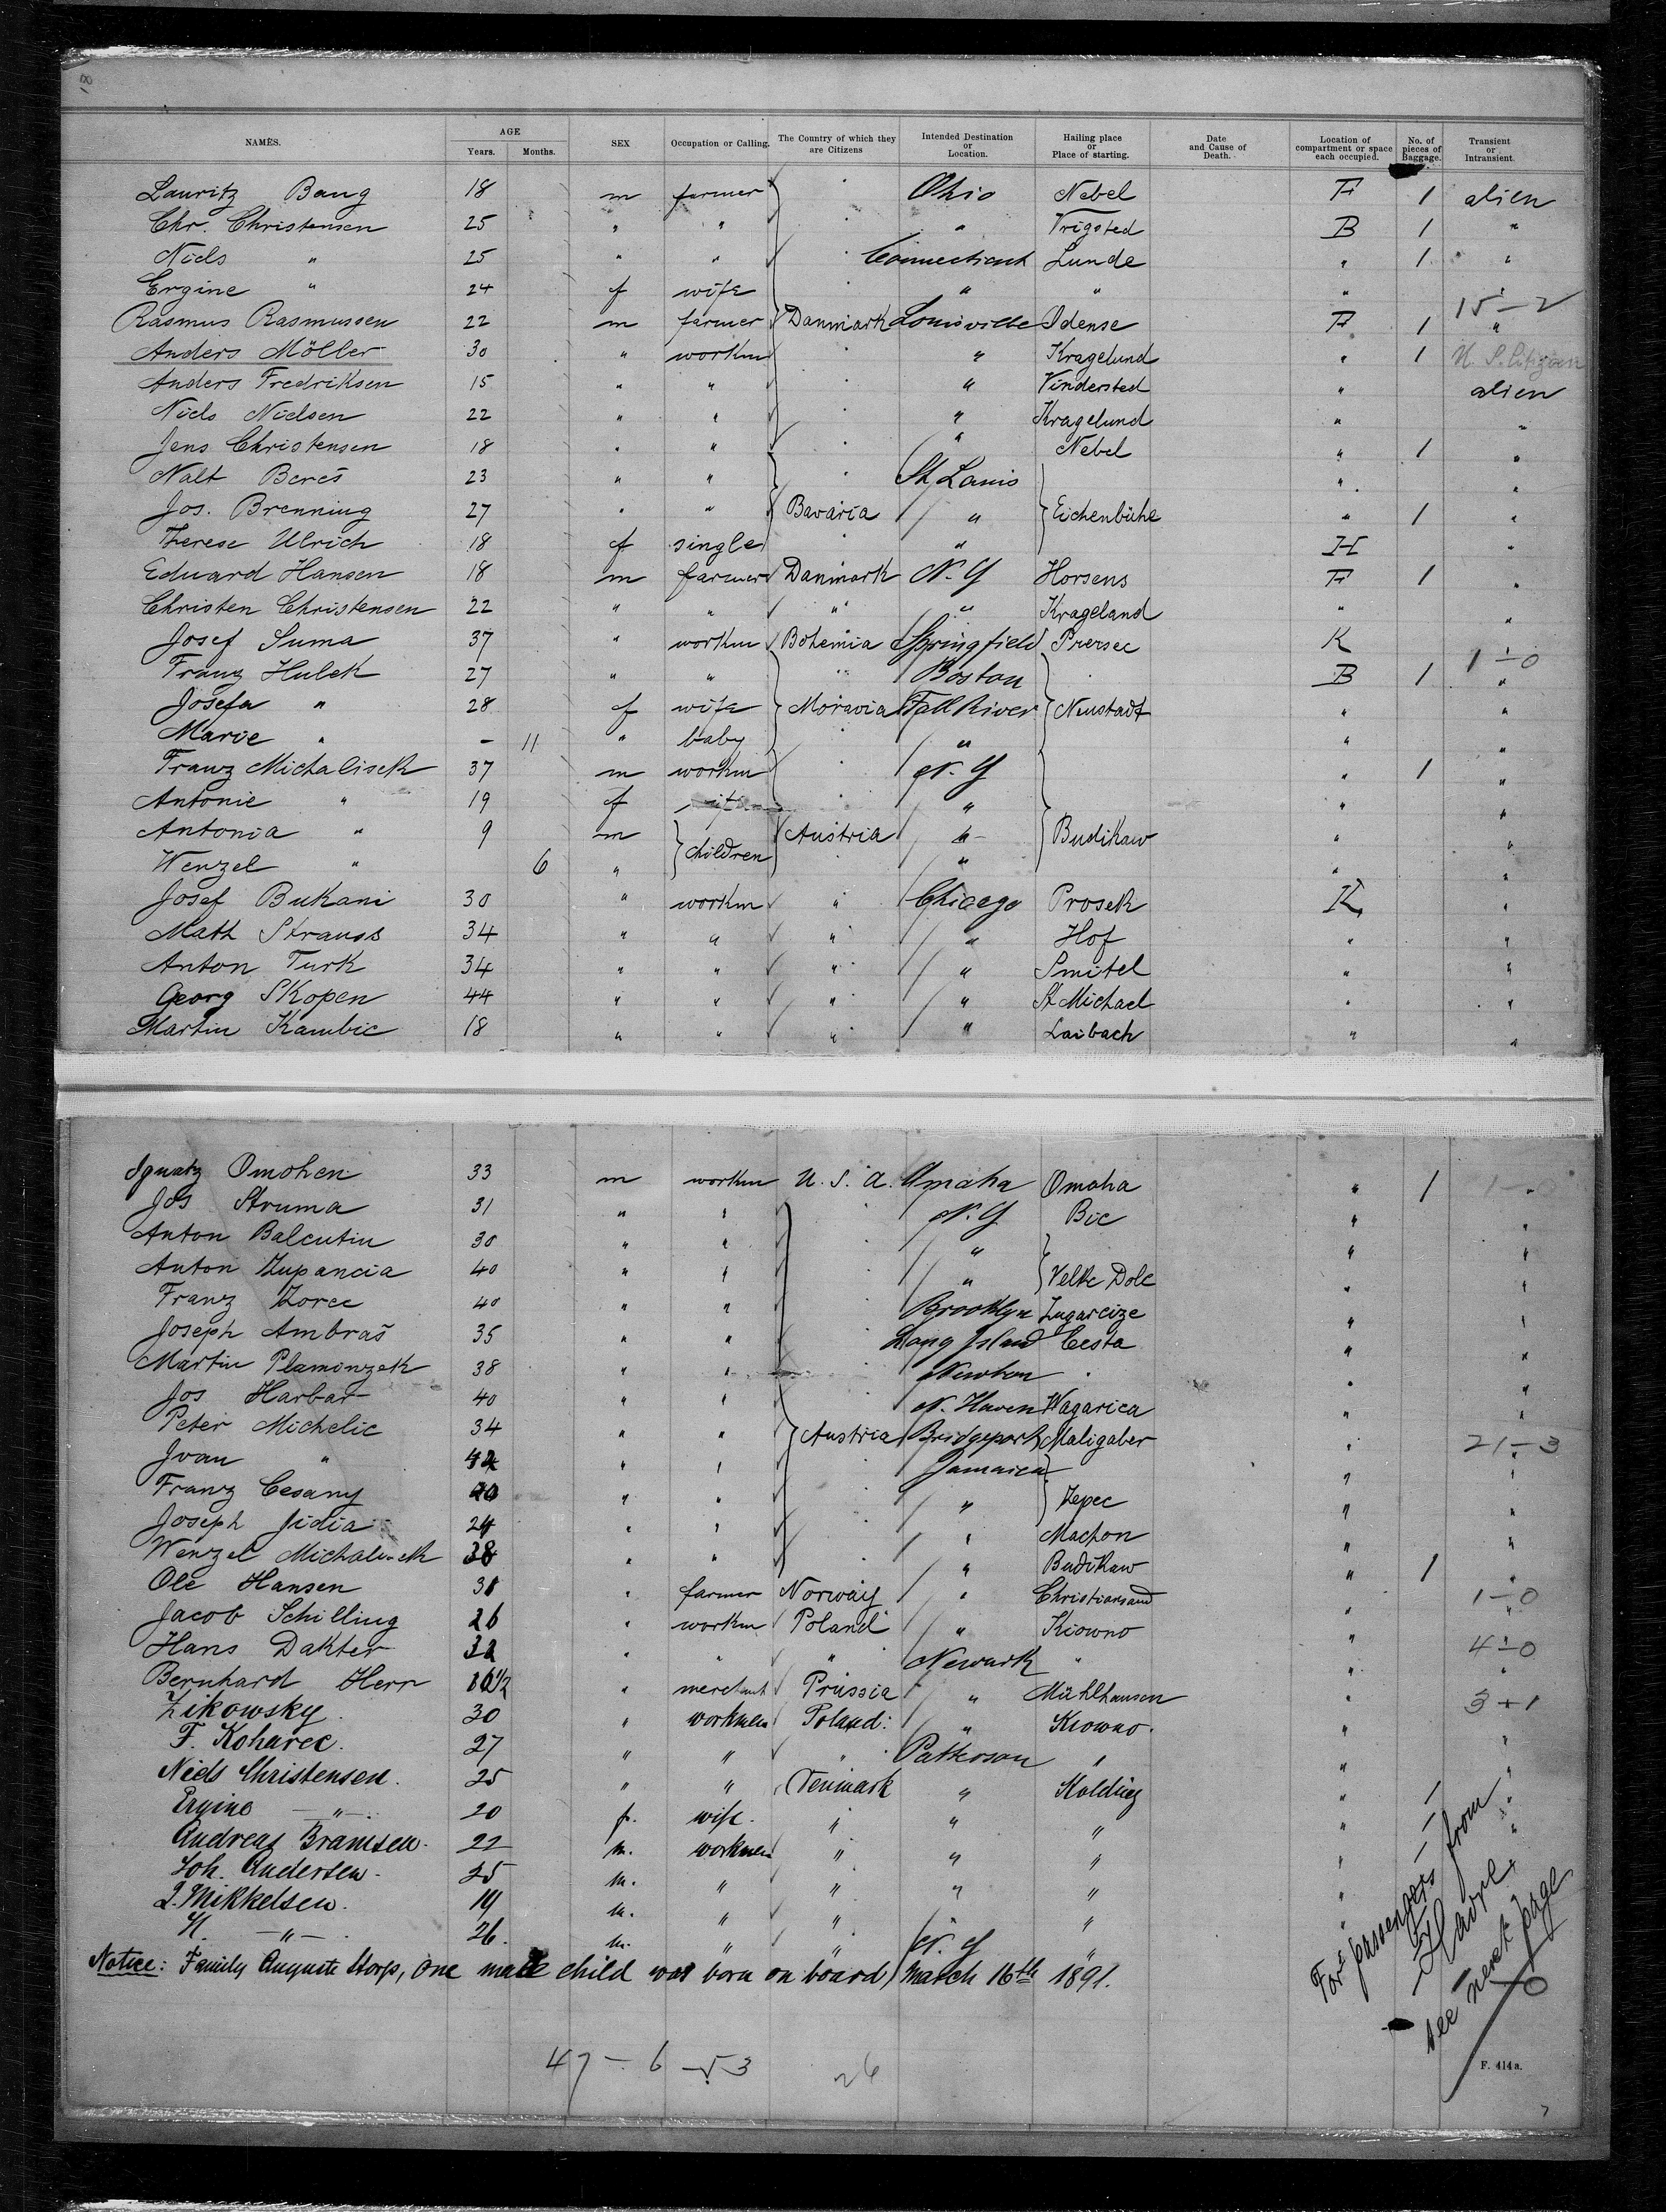 18
NAMES. AGE Years. Months. SEX Occupation or Calling. The Country of which they are Citizens Intended Destination or Location. Hailing place or Place of starting. Date and Cause of Death. Location of compartment or space each occupied. No. of pieces of Baggage. Transient or Intransient.
Lauritz Bang 18 m farmer Ohio Nebel F 1 alien
Chr. Christensen 25 " " " Vrigsted B 1 "
Niels " 25 " " Connecticut Lunde " 1 "
Ergine " 24 f wife " " " "
15-2
Rasmus Rasmussen 22 m farmer Danmark Louisville Odense F 1 "
Anders Möller 30 " workm " Kragelund " 1 U. S. Citizen
Anders Fredriksen 15 " " " Vindersted " alien
Niels Nielsen 22 " " " Kragelund " "
Jens Christensen 18 " " " Nebel " 1 "
Nalt Bereš 23 " " St Louis " "
Jos. Brenning 27 " " Bavaria " Eichenbühe " 1 "
Therese Ulrich 18 f single " H "
Eduard Hansen 18 m farmer Danmark N. Y Horsens F 1 "
Christen Christensen 22 " " " " Krageland " "
Josef Suma 37 " workm Bohemia Springfield Prersec K
1-0
Franz Hulek 27 " " Boston B 1 "
Josefa " 28 f wife Moravia Fall River Neustadt " "
Marie " - 11 " baby " " "
Franz Michalisek 37 m workm N. Y " 1 "
Antonie " 19 f wife " " "
Antonia " 9 m children Austria " Budikaw " "
Wenzel " 6 " " " "
Josef Bukani 30 " workm " Chicago Prosek K "
Math Strauss 34 " " " " Hof " "
Anton Turk 34 " " " " Smitel " "
Georg Skopen 44 " " " " St Michael " "
Martin Kambic 18 " " " " Laibach " "
Ignatz Omohen 33 m workm U. S. A. Omaha Omaha " 1 "
Jos Struma 31 " " N. Y Bic " "
Anton Balcutin 30 " " " " "
Anton Zupancia 40 " " " Velke Dole " "
Franz Zorec 40 " " Brooklyn Zugarcize " "
Joseph Ambraš 35 " " Long Island Cesta " "
Martin Plaminzek 38 " " Newton " "
Jos Harbar 40 " " N. Haven Wagarica " "
Peter Michelic 34 " " Austria Bridgeport Maligaber " 21-3
Ivan " 42 " " Jamaica " "
Franz Cesany 40 " " " Zepec " "
Joseph Jidia 24 " " " Machon " "
Wenzel Michalisek 38 " " " Budikaw " 1 "
Ole Hansen 31 " farmer Norway " Christiansand " 1-0
Jacob Schilling 26 " workm Poland " Kiowno " "
Hans Dakter 32 " " " Newark " " 4-0
Bernhard Herr 16 1/2 " merchant Prussia " Mühlhausen " 3-1
Zikowsky 30 " workmen Poland: " Kiowno. " "
F. Koharec. 27 " " " Patterson " " "
Niels Christensen. 25 " " Denmark " Kolding " "
Ergine -"- 20 f. wife. " " " "
Andreas Bramsen. 22 m. workmen " " " "
Joh. Andersen. 25 m. " " " " "
L. Mikkelsen. 19 m. " " " " "
N. -"- 26. m. " " N. Y "
Notice: Family Auguste Storp, one male child was born on board, March 16th 1891.
For passengers from
Havre,
see next page
47 - 6 - 53 26
F. 414 a.